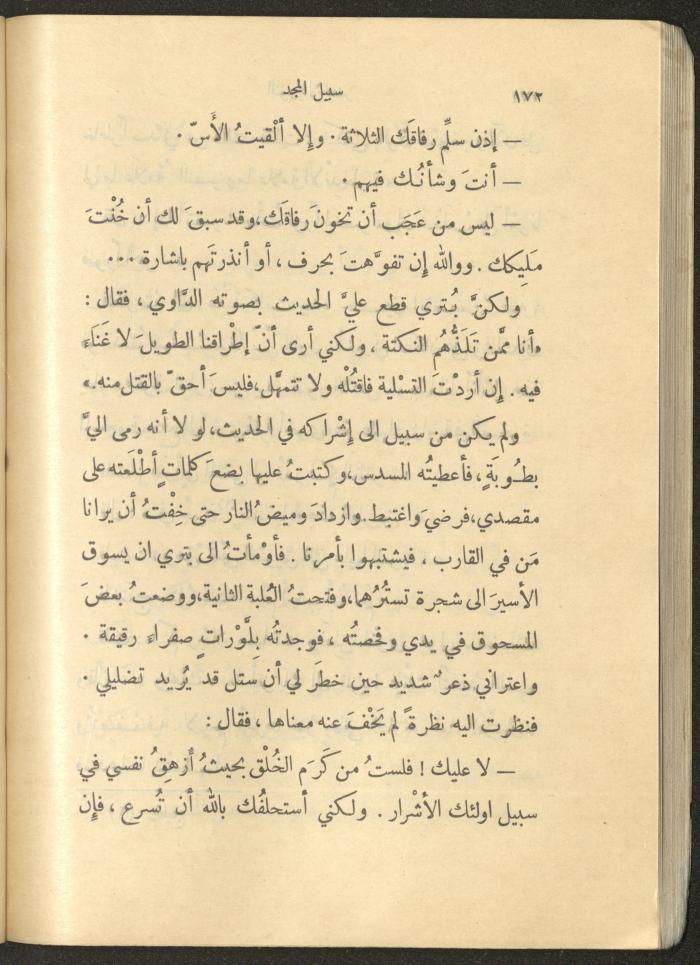 ١٧٢
سبيل المجد
— إذن سلِّم رفاقَك الثلاثة . وإلا ألْقيتُ الأَسّ .
— أنتَ وشأنُك فيهم .
— ليس من عَجَب أن تخونَ رفاقَك، وقد سبقَ لك أن خُنْتَ
مَليكك . ووالله إن تفوّهتَ بحرف ، أو أنذرتَهم باشارة ...
ولكنَّ بُتري قطع عليَّ الحديث بصوته الدَّاوي ، فقال :
«أنا ممَّن تَلَذُّهُم النكتة ، ولكني أرى أنّ إطْراقنا الطويلَ لا غَنَاءَ
فيه . إن أردْتَ التسْلية فاقتُلْه ولا تتمهَّل، فليسَ أحقّ بالقتل منه.»
ولم يكن من سبيل الى إشْراكه في الحديث، لولا أنه رمى اليَّ
بطُوبَةٍ ، فأعطيتُه المسدس، وكتبتُ عليها بضعَ كلماتٍ أطْلَعته على
مقصدي، فرضيَ واغتبط. وازدادَ وميضُ النار حتى خِفْتُ أن يرانا
مَن في القارب ، فيشتبهوا بأمرنا . فأوْمأتُ الى بتري ان يسوق
الأسيرَ الى شجرة تستُرُهما، وفتحتُ العُلبة الثانية، ووضعتُ بعضَ
المسحوق في يدي وفحصتُه ، فوجدتُه بِلَّوْراتٍ صفراء رقيقة .
واعتراني ذعرٌ شديد حين خطَر لي أن ستل قد يُريد تضليلي .
فنظرت اليه نظرةً لم يَخْفَ عنه معناها ، فقال :
— لا عليك ! فلستُ من كَرَم الخُلْق بحيثُ أُزهِقُ نفسي في
سبيل اولئك الأشْرار . ولكني أستحلفُك بالله أن تُسرع ، فإِن